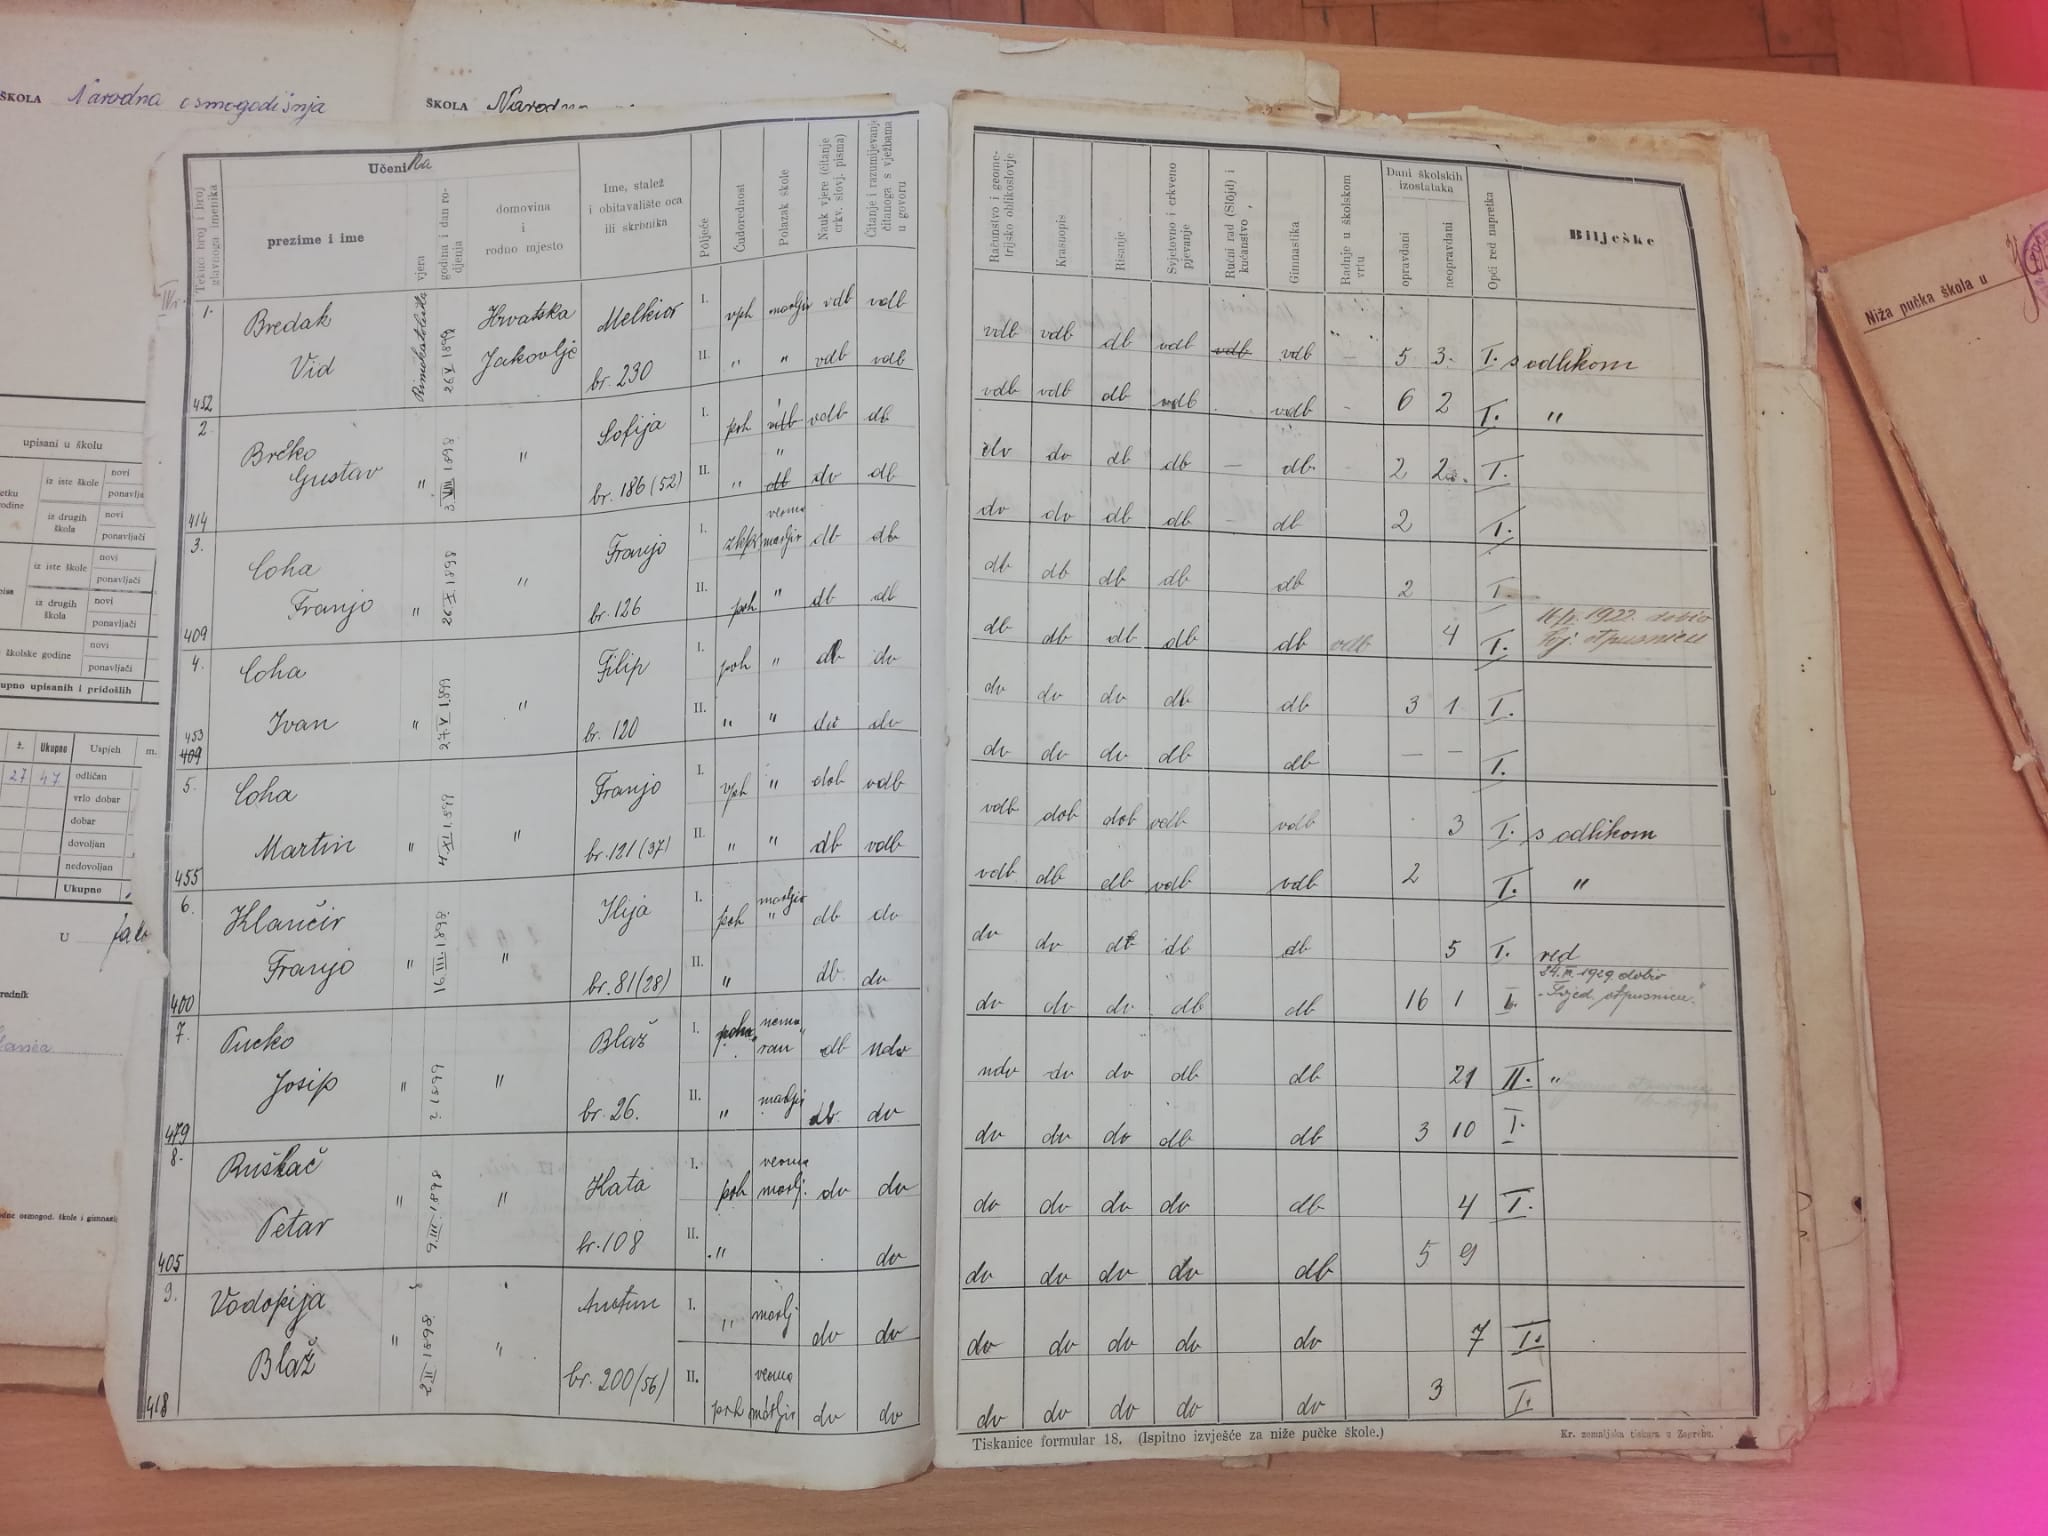 ŠKOLA Narodna osmogodišnja
ŠKOLA Narodna
upisani u školu
iz iste škole
novi
ponavlja
iz drugih škola
novi
ponavljači
iz iste škole
novi
ponavljači
iz drugih škola
novi
ponavljači
školske godine
novi
ponavljači
upno upisanih i pridošlih
ž. Ukupno Uspjeh m.
27 47 odličan
vrlo dobar
dobar
dovoljan
nedovoljan
Ukupno
U
rednik
odne osmogod. škole i gimnazij
Tekući broj i broj glavnoga imenika
Učenika
prezime i ime
vjera
godina i dan rodjenja
domovina
i
rodno mjesto
Ime, stalež
i obitavalište oca
ili skrbnika
Poljeće
Ćudorednost
Polazak škole
Nauk vjere (čitanje crkv. slovj. pisma)
Čitanje i razumijevanje čitanoga s vježbama u govoru
Računstvo i geometrijsko oblikoslovje
Krasnopis
Risanje
Svjetovno i crkveno pjevanje
Ručni rad (Slöjd) i kućanstvo
Gimnastika
Radnje u školskom vrtu
Dani školskih izostataka
opravdani
neopravdani
Opći red napretka
Bilješke
IV r.
1. Bredak Hrvatska Melkior I. vph marljiv vdb vdb vdb vdb db vdb vdb vdb 5 3. I. s odlikom
Vid Rimokatolička 26 X 1899 Jakovlje br. 230 II. " " vdb vdb vdb vdb db vdb vdb 6 2 I. "
452
2 Brčko Sofija I. poh vdb vdb db dv dv db db — db 2 2 I.
Gustav " 3 VIII 1898 " br. 186 (52) II. " " db dv db dv dv db db — db 2 I.
414
3. Coha Franjo I. veoma marljiv db db db db db db db 2 I.
Franjo " 26 X 1898 " br. 126 II. poh " db db db db db db db vdb 4 I. 1922. dobio
otpusnicu
409
4. Coha Filip I. poh " db dv dv dv dv db db 3 1 I.
Ivan " 27 X 1899 " br. 120 II. " " dv dv dv dv dv db db — — I.
453
409
5. Coha Franjo I. vph " dob vdb vdb dob dob vdb vdb 3 I. s odlikom
Martin " 4 XI 1899 " br. 121 (37) II. " " db vdb vdb db db vdb vdb 2 I. "
455
6. Klančir Ilija I. poh marljiv " db dv dv dv db db db 5 I. red
Franjo " 19 III 1898 " br. 81 (28) II. " db. dv dv dv dv db db 16 1 I. 1929 dobio
"Svjed. otpusnicu."
400
7. Pucko Blaž I. poha nema ran db ndv ndv dv dv db db 21 II. "
Josip " 1899 " br. 26. II. " marljiv db. dv dv dv dv db db 3 10 I.
479
8. Ruškač Kata I. poh veoma marlj. dv dv dv dv dv dv db 4 I.
Petar " 9. III 1898 " br. 108 II. " dv dv dv dv dv db 5 9
405
9. Vodopija I. " marlj dv dv dv dv dv dv dv 7 I.
Blaž " 1898 " br. 200 (56) II. poh veoma marljiv dv dv dv dv dv dv dv 3 I.
418
Tiskanice formular 18. (Ispitno izvješće za niže pučke škole.)
Kr. zemaljska tiskara u Zagrebu.
Niža pučka škola u